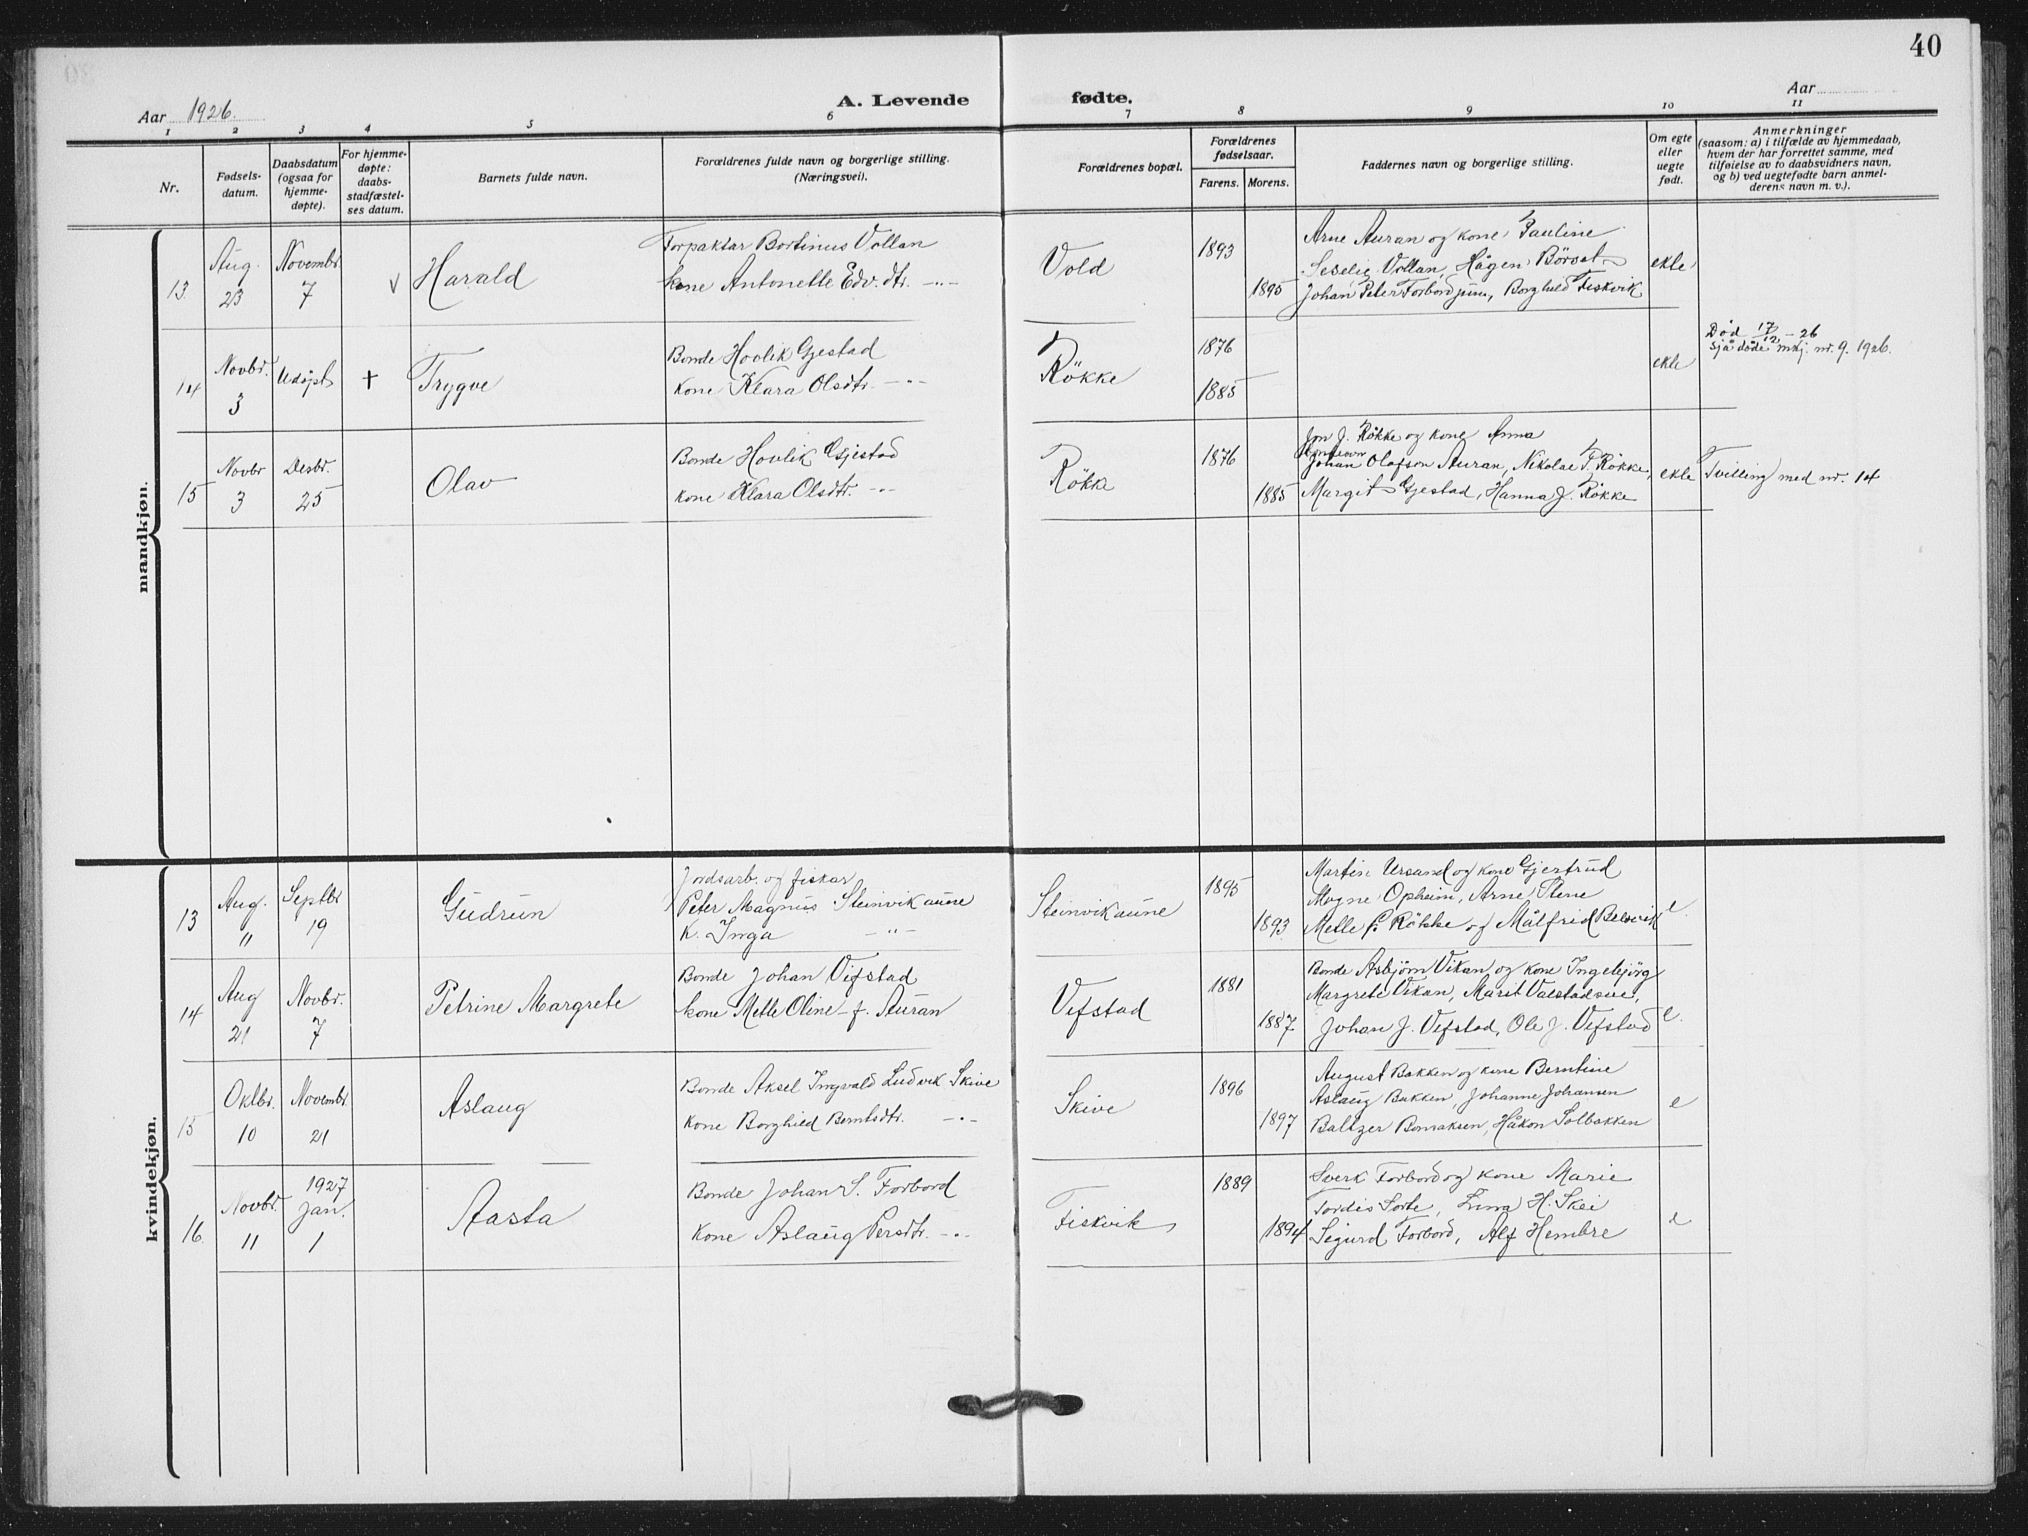 40
Aar 1926.
A. Levende fødte.
Aar
1 2 3 4 5 6 7 8 9 10 11
Nr.
Fødsels-
datum.
Daabsdatum
(ogsaa for
hjemme-
døpte).
For hjemme-
døpte:
daabs-
stadfæstel-
ses datum.
Barnets fulde navn.
Forældrenes fulde navn og borgerlige stilling.
(Næringsvei).
Forældrenes bopæl.
Forældrenes
fødselsaar.
Farens. Morens.
Faddernes navn og borgerlige stilling.
Om egte
eller
uegte
født.
Anmerkninger
(saasom: a) i tilfælde av hjemmedaab,
hvem der har forrettet samme, med
tilføielse av to daabsvidners navn,
og b) ved uegtefødte barn anmel-
derens navn m. v.).
mandkjøn.
13
Aug.
23
Novembr.
7
Harald
Forpaktar Bortinus Vollan
kone Antonette Edv. dtr. -"-
Vold
1893
1895
Arne Auran og kone Pauline
Seselie Vollan, Hågen Börset
Johan Peter Forbord, Borghild Fiskvik
ekte
14
Novbr.
3
Udöpt
+
Trygve
Bonde Hovlik Gjestad
kone Klara Olsdtr. -"-
Rökke
1876
1885
ekte
Död 17/12 - 26
sjå döde mkj. nr. 9. 1926.
15
Novbr
3
Desbr.
25
Olav
Bonde Hovlik Gjestad
kone Klara Olsdtr. -"-
Rökke
1876
1885
Jon J. Rökke og kone Anna
Johan Olafson Auran, Nikolai F. Rökke,
Margit Gjestad, Hanna J. Rökke
ekte
Tvilling med nr. 14
kvindekjøn.
13
Aug.
11
Septbr
19
Gudrun
Jordsarb. og fiskar
Peter Magnus Steinvikaune
K. Inga -"-
Steinvikaune
1895
1893
Martin Ursand og kone Gjertrud
Magne Opheim, Arne Stene
Mette P. Rökke og Målfrid Belsvik
e.
14
Aug
21
Novbr.
7
Petrine Margrete
Bonde Johan Vifstad
kone Mette Oline f. Auran
Vifstad
1881
1887
Bonde Asbjörn Vikan og kone Ingebjörg
Margrete Vikan, Marit
Johan J. Vifstad, Ole J. Vifstad
e.
15
Oktbr.
10
Novembr.
21
Aslaug
Bonde Aksel Ingvald Ludvik Skive
kone Borghild Berntsdtr. -"-
Skive
1896
1897
August Bakken og kone Berntine
Aslaug Bakken, Johanne Johansen
Baltzer Bonsaksen, Håkon Solbakken
e
16.
Novbr.
11
1927
Jan.
1
Aasta
Bonde Johan S. Forbord
kone Aslaug Persdtr. -"-
Fiskvik
1889
1894
Sverk Forbord og kone Marie
Tordis Sorte, H. Skei
Sigurd Forbord, Alf Hembre
e